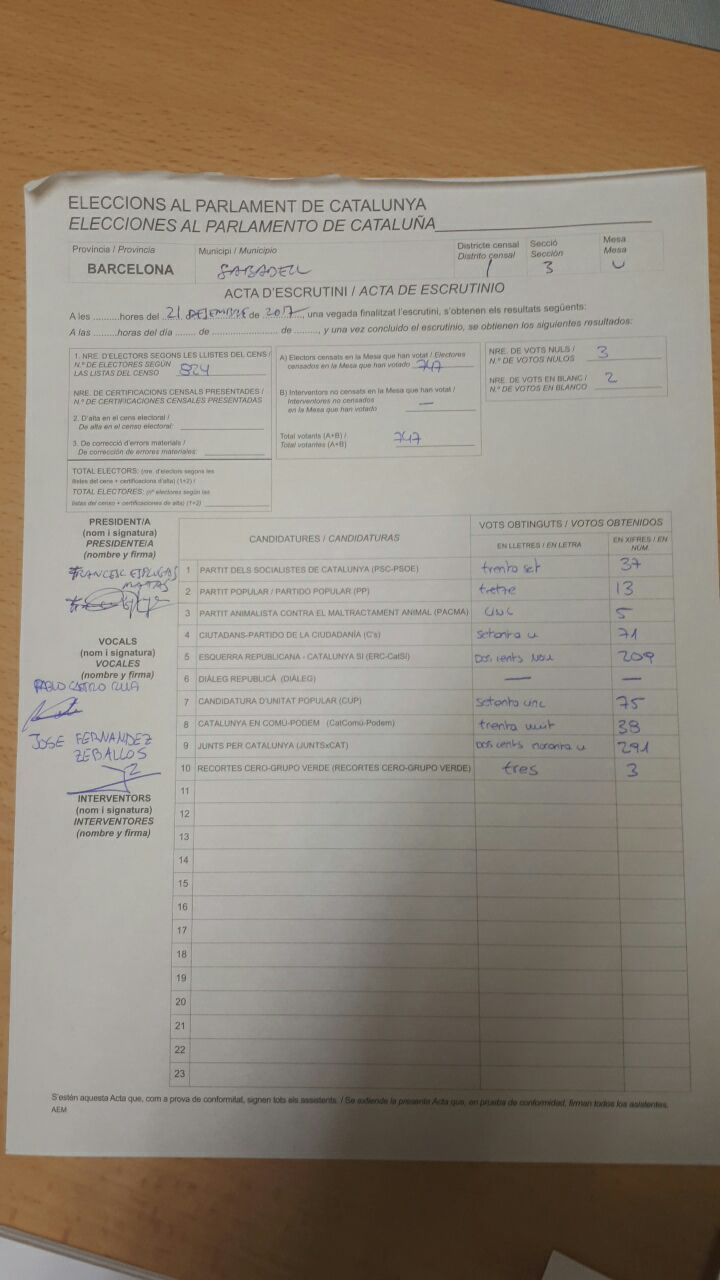 ELECCIONS AL PARLAMENT DE CATALUNYA
ELECCIONES AL PARLAMENTO DE CATALUÑA
Provincia / Provincia
BARCELONA
Municipi / Municipio
SABADELL
Districte censal
Distrito censal
1
Secció
Sección
3
Mesa
Mesa
U
ACTA D'ESCRUTINI / ACTA DE ESCRUTINIO
A les ..........hores del ..21 DESEMBRE de 2017...., una vegada finalitzat l'escrutini, s'obtenen els resultats següents:
A las ..........horas del día ........ de .................. de ........, y una vez concluido el escrutinio, se obtienen los siguientes resultados:
1. NRE. D'ELECTORS SEGONS LES LLISTES DEL CENS /
N.º DE ELECTORES SEGÚN
LAS LISTAS DEL CENSO 824
NRE. DE CERTIFICACIONS CENSALS PRESENTADES /
N.º DE CERTIFICACIONES CENSALES PRESENTADAS
2. D'alta en el cens electoral /
De alta en el censo electoral:
3. De correcció d'errors materials /
De corrección de errores materiales:
TOTAL ELECTORS: (nre. d'electors segons les
llistes del cens + certificacions d'alta) (1+2) /
TOTAL ELECTORES: (nº electores según las
listas del censo + certificaciones de alta) (1+2)
A) Electors censats en la Mesa que han votat / Electores
censados en la Mesa que han votado 747
B) Interventors no censats en la Mesa que han votat /
Interventores no censados
en la Mesa que han votado —
Total votants (A+B) /
Total votantes (A+B) 747
NRE. DE VOTS NULS /
N.º DE VOTOS NULOS 3
NRE. DE VOTS EN BLANC /
N.º DE VOTOS EN BLANCO 2
PRESIDENT/A
(nom i signatura)
PRESIDENTE/A
(nombre y firma)
FRANCESC ESPLUGAS
MATAS
VOCALS
(nom i signatura)
VOCALES
(nombre y firma)
PABLO CASTRO
JOSE FERNANDEZ
ZEBALLOS
INTERVENTORS
(nom i signatura)
INTERVENTORES
(nombre y firma)
CANDIDATURES / CANDIDATURAS
VOTS OBTINGUTS / VOTOS OBTENIDOS
EN LLETRES / EN LETRA
EN XIFRES / EN NÚM.
1 PARTIT DELS SOCIALISTES DE CATALUNYA (PSC-PSOE) trenta set 37
2 PARTIT POPULAR / PARTIDO POPULAR (PP) tretze 13
3 PARTIT ANIMALISTA CONTRA EL MALTRACTAMENT ANIMAL (PACMA) cinc 5
4 CIUTADANS-PARTIDO DE LA CIUDADANÍA (C's) setanta u 71
5 ESQUERRA REPUBLICANA - CATALUNYA SÍ (ERC-CatSí) Dos cents Nou 209
6 DIÀLEG REPUBLICÀ (DIÀLEG) — —
7 CANDIDATURA D'UNITAT POPULAR (CUP) Setanta cinc 75
8 CATALUNYA EN COMÚ-PODEM (CatComú-Podem) trenta vuit 38
9 JUNTS PER CATALUNYA (JUNTSxCAT) Dos cents noranta u 291
10 RECORTES CERO-GRUPO VERDE (RECORTES CERO-GRUPO VERDE) tres 3
11
12
13
14
15
16
17
18
19
20
21
22
23
S'estén aquesta Acta que, com a prova de conformitat, signen tots els assistents. / Se extiende la presente Acta que, en prueba de conformidad, firman todos los asistentes.
AEM